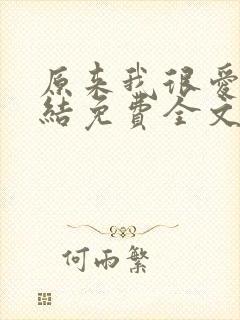 原来我很爱
結免費全文
何雨繁